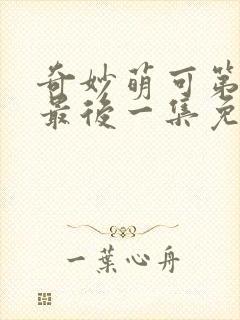 奇妙萌可第
最後一集免
一葉心舟